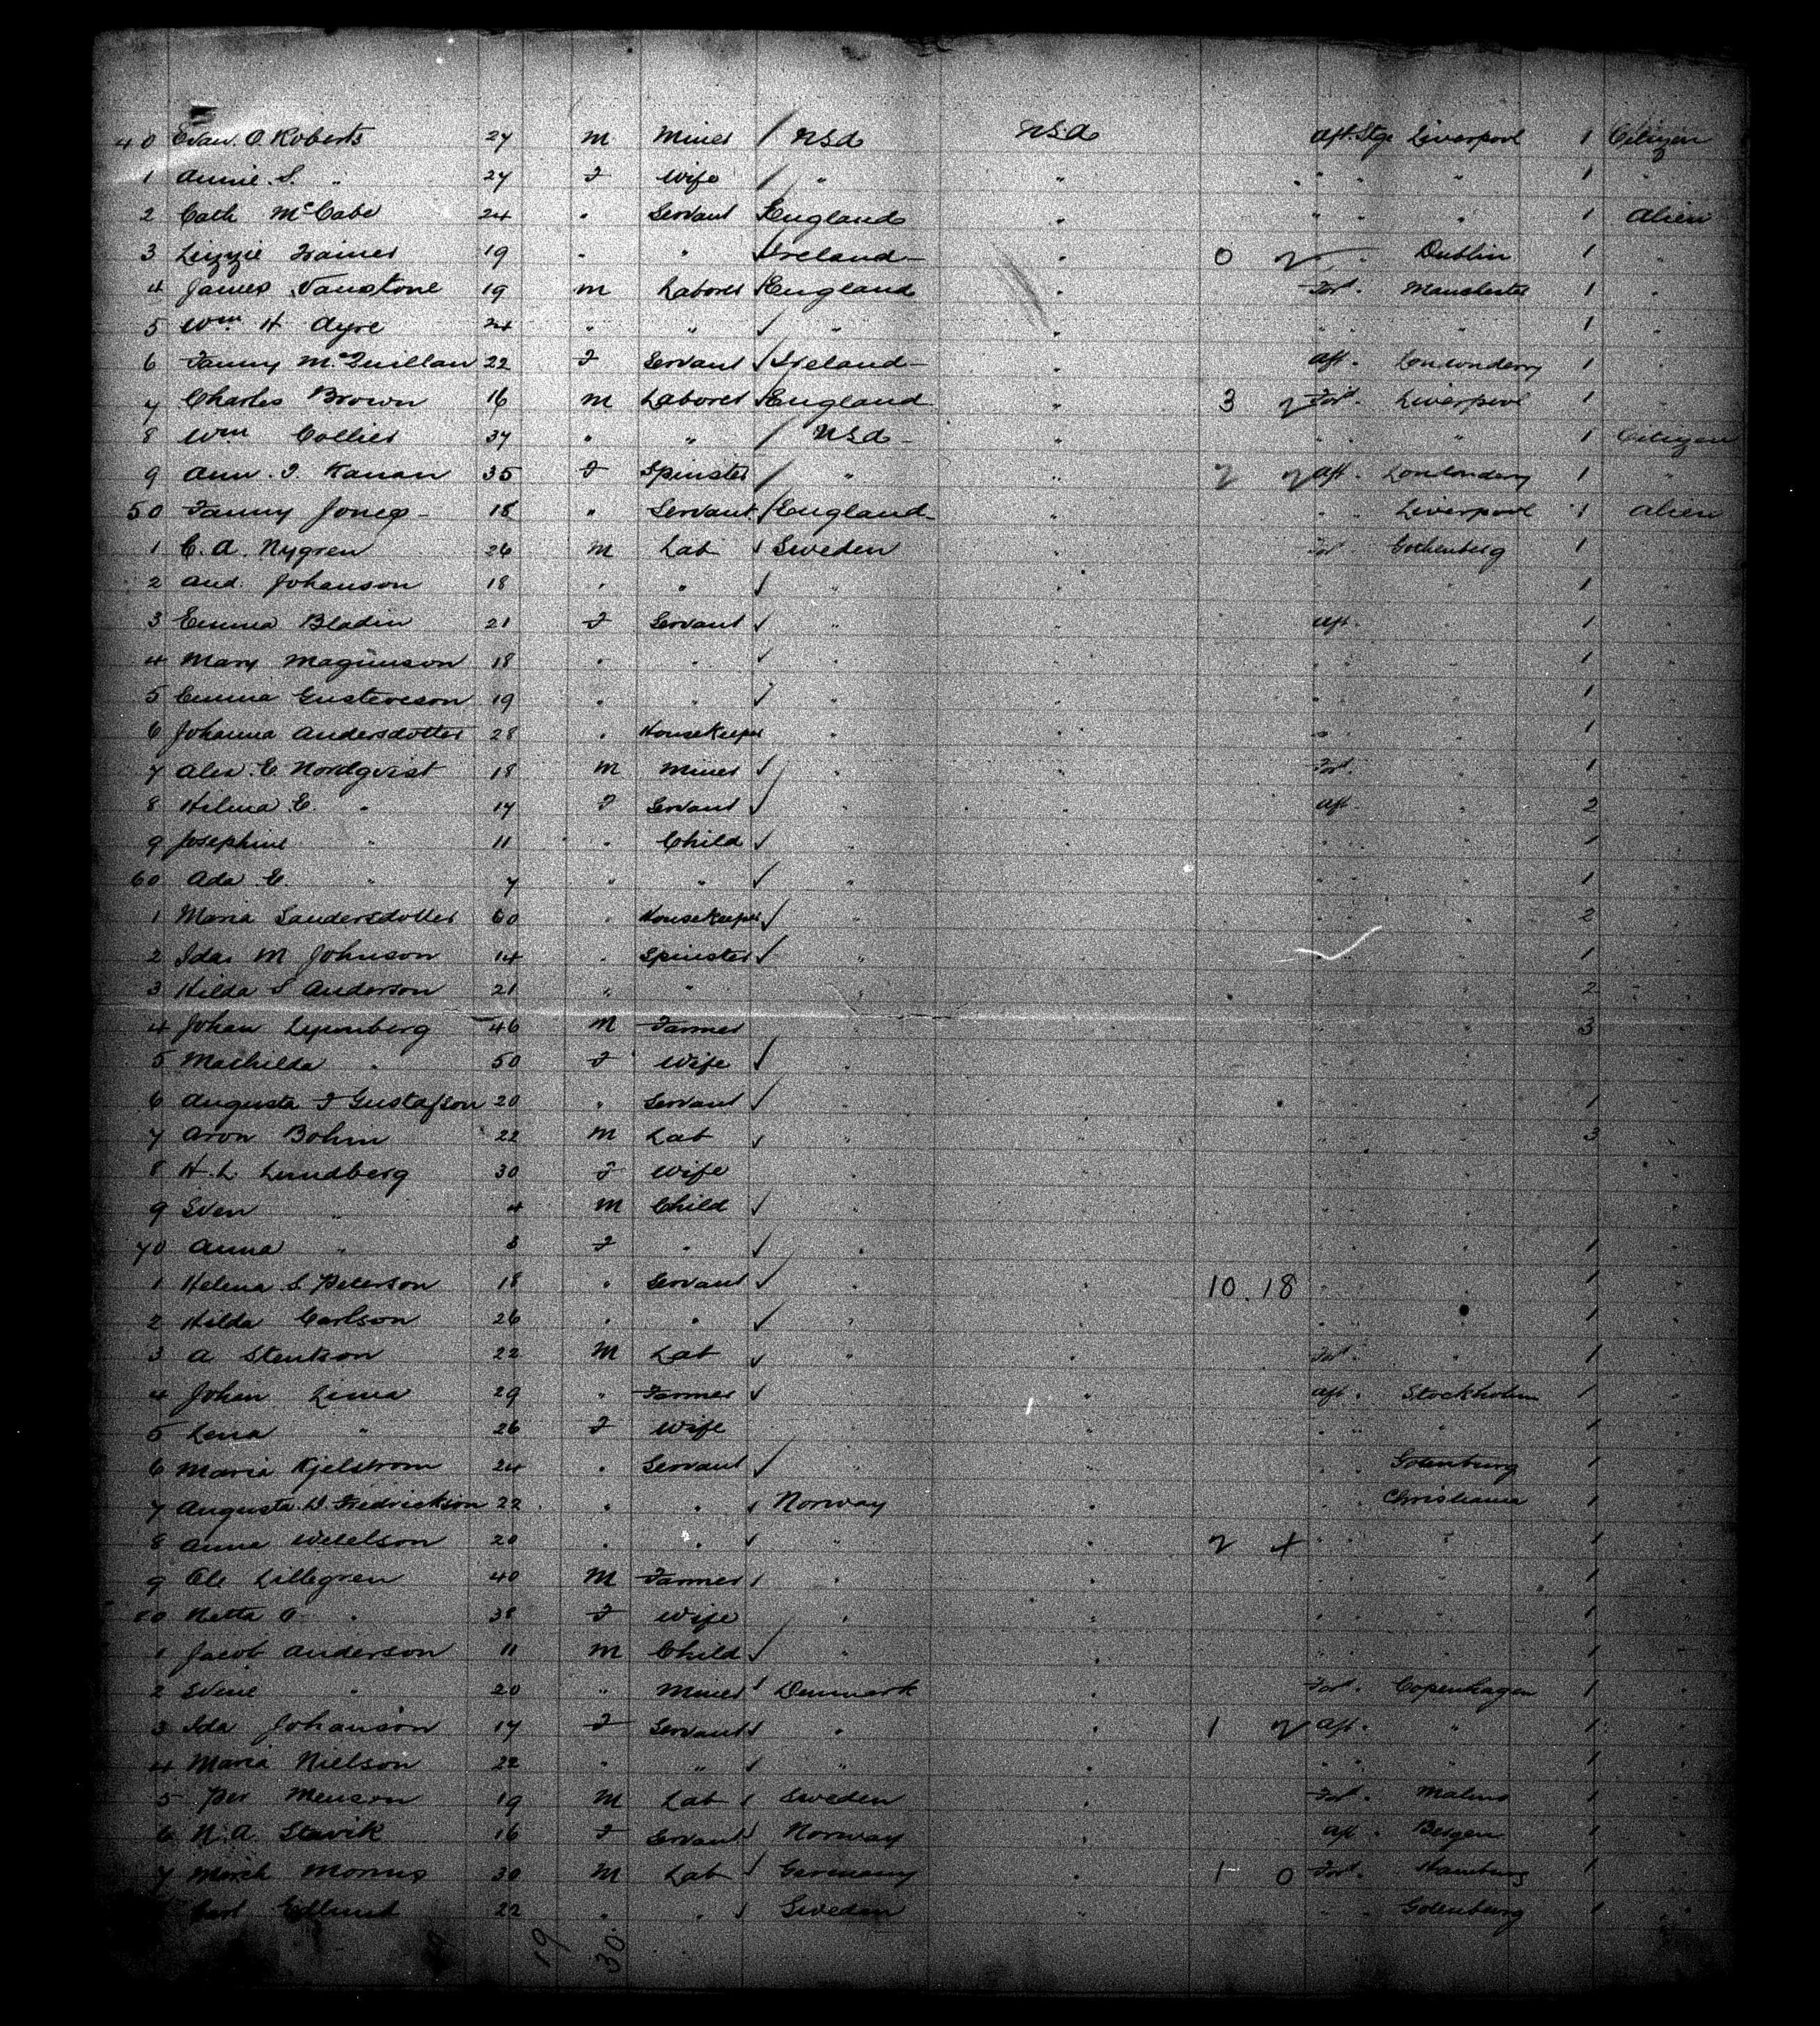 40 Evan. O. Roberts 27 M Miner / USA USA Aft. Stge Liverpool 1 Citizen
1 Annie. S. " 27 F Wife / " " " " " 1 "
2 Cath McCabe 24 " Servant England " " " " 1 Alien
3 Lizzie 19 " " Ireland " 0 2 " Dublin 1 "
4 James Vanstone 19 M Laborer England " For'd. Manchester 1 "
5 Wm H Ayre 24 " " ✓ " " " " 1 "
6 Fanny McQuillan 22 F Servant ✓ Ireland " Aft. Londonderry 1 "
7 Charles Brown 16 M Laborer England " 3 2 For'd. Liverpool 1 "
8 Wm Collier 37 " " / USA " " " 1 Citizen
9 Ann. F. Kanan 35 F Spinster / " " 2 2 Aft. Londonderry 1 "
50 Fanny Jones 18 " Servant / England " " Liverpool 1 Alien
1 C. A. Nygren 26 M Lab ✓ Sweden " For Gothenberg 1 "
2 And. Johanson 18 " " ✓ " " " " 1 "
3 Emma Bladin 21 F Servant ✓ " " Aft " 1 "
4 Mary Magnuson 18 " " ✓ " " " " 1 "
5 Emma Gusteveson 19 " " ✓ " " " " 1 "
6 Johanna Andersdotter 28 " Housekeeper " " " " 1 "
7 Alex. E. Nordqvist 18 M Miner ✓ " " For'd. " 1 "
8 Hilma E. " 17 F Servant ✓ " " Aft " 2 "
9 Josephine " 11 " Child ✓ " " " " 1 "
60 Ada E. " 7 " " ✓ " " " 1 "
1 Maria Sandersdotter 60 " Housekeeper ✓ " " " 2 "
2 Ida M Johnson 14 " Spinster ✓ " " " 1 "
3 Hilda S Anderson 21 " " " " " 2 "
4 Johan 46 M Farmer " " " 3 "
5 Mathilda " 50 F Wife ✓ " "
6 Augusta F Gustafson 20 " Servant ✓ " " 1 "
7 Aron Bohin 22 M Lab ✓ " " " 3 "
8 H. L. Lundberg 30 F Wife
9 Sven " 4 M Child ✓ " "
70 Anna " 3 F " ✓ " " " 1 "
1 Helena S Peterson 18 " Servant ✓ " " 10.18 " " 1 "
2 Hilda Carlson 26 " " ✓ " " " 1 "
3 A Stenkson 22 M Lab ✓ " " For'd. " 1 "
4 Johan Lima 29 " Farmer ✓ " Aft. Stockholm 1 "
5 Lena " 26 F Wife " " " " 1 "
6 Maria Kjelstrom 24 " Servant ✓ " " " Gotenburg 1 "
7 Augusta. D. Fredrickson 22 " " ✓ Norway " " Christiania 1 "
8 Anna 20 " " ✓ " " 2 4 " " 1 "
9 Ole Lillegren 40 M Farmer ✓ " " " " 1 "
80 Netta O " 38 F Wife " " " " 1 "
1 Jacob Anderson 11 M Child ✓ " " " " 1 "
2 " 20 " Miner ✓ Denmark " For'd. Copenhagen 1 "
3 Ida Johanson 17 F Servant ✓ " " 1 2 Aft. " 1 "
4 Maria Nielson 22 " " ✓ " " " " 1 "
5 Per Menson 19 M Lab ✓ Sweden " For'd. Malmo 1 "
6 N. A. Slavik 16 F Servant ✓ Norway Aft. Bergen 1 "
7 Morris 30 M Lab ✓ Germany " 1 0 For'd. Hamburg 1 "
Carl Edlund 22 " " ✓ Sweden " " Gotenburg 1 "
19 30